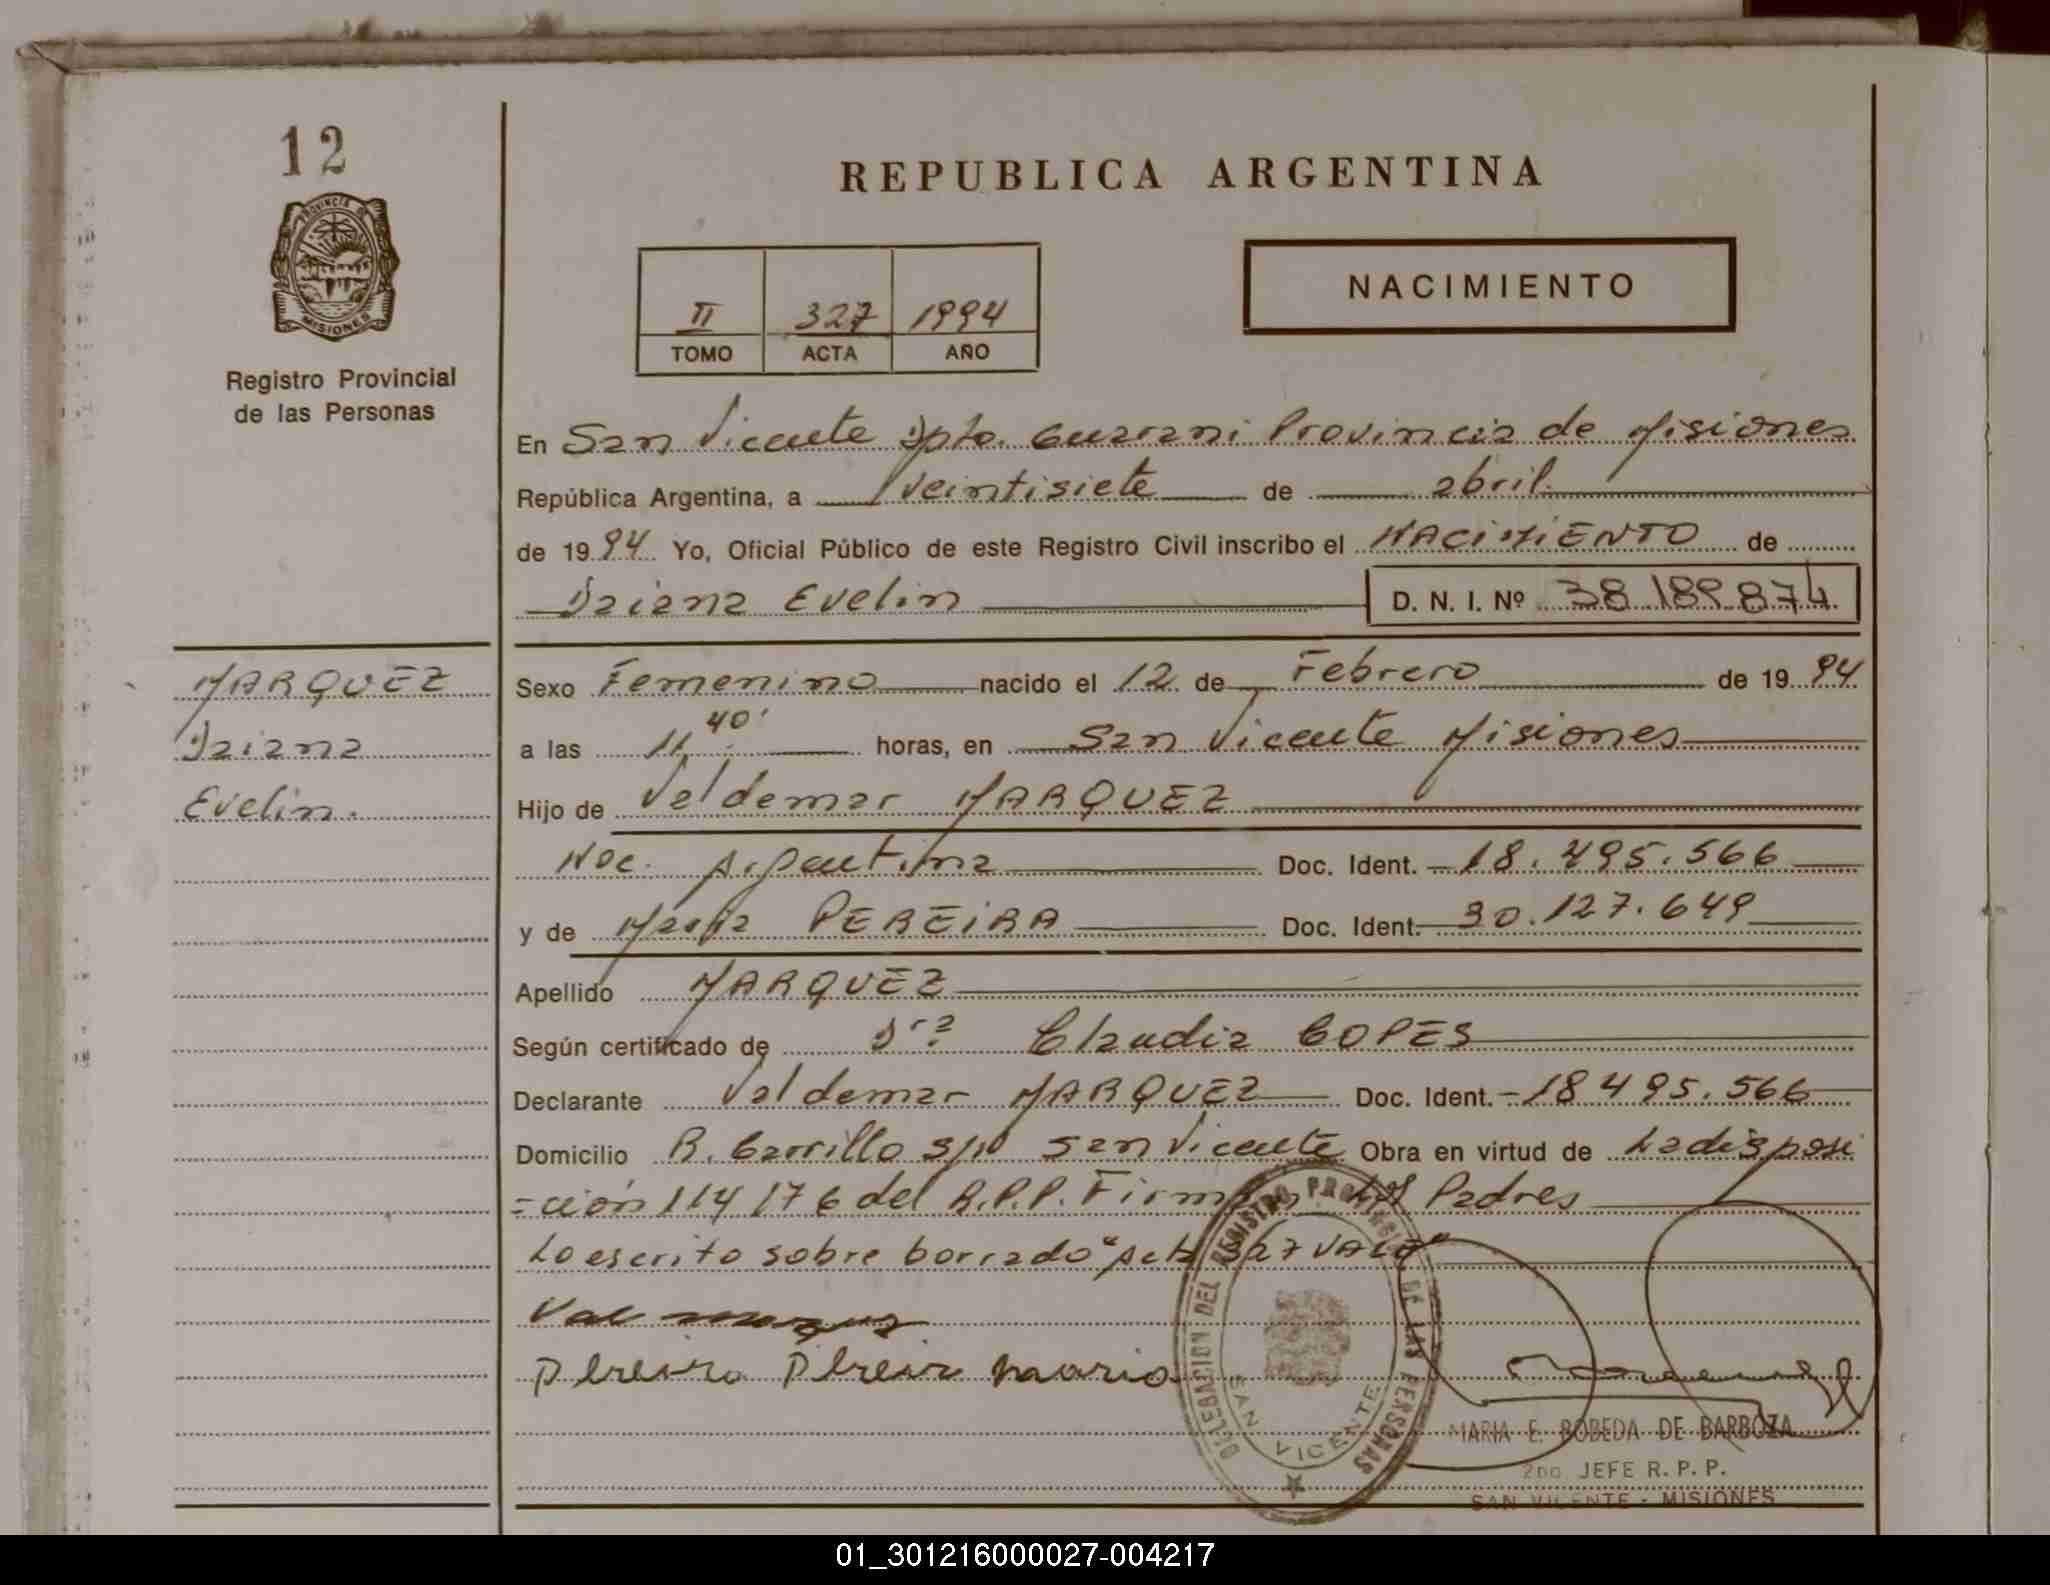 12
REPUBLICA ARGENTINA
PROVINCIA DE
MISIONES
Registro Provincial
de las Personas
NACIMIENTO
II 327 1994
TOMO ACTA AÑO
En San Vicente Dpto. Guarani Provincia de Misiones
República Argentina, a veintisiete de abril
de 1994 Yo, Oficial Público de este Registro Civil inscribo el NACIMIENTO de
Daiana Evelin D. N. I. Nº 38.189.874
MARQUEZ
Daiana
Evelin.
Sexo Femenino nacido el 12 de Febrero de 1994
a las 11,40' horas, en San Vicente Misiones
Hijo de Valdemar MARQUEZ
Nac. Argentina Doc. Ident. 18.495.566
y de Maria PEREIRA Doc. Ident. 30.127.649
Apellido MARQUEZ
Según certificado de Dra Claudia COPES
Declarante Valdemar MARQUEZ Doc. Ident. 18495.566
Domicilio R. Carrillo S/Nº San Vicente Obra en virtud de La disposi
=ción 114/76 del R.P.P. Firman los Padres
Lo escrito sobre borrado "Acta 327 VALE"
Pereira Pereir maria
DELEGACION DEL REGISTRO PROVINCIAL DE LAS PERSONAS
SAN VICENTE
MARIA E. BOBEDA DE BARBOZA
2do JEFE R. P. P.
SAN VICENTE - MISIONES
01_301216000027-004217